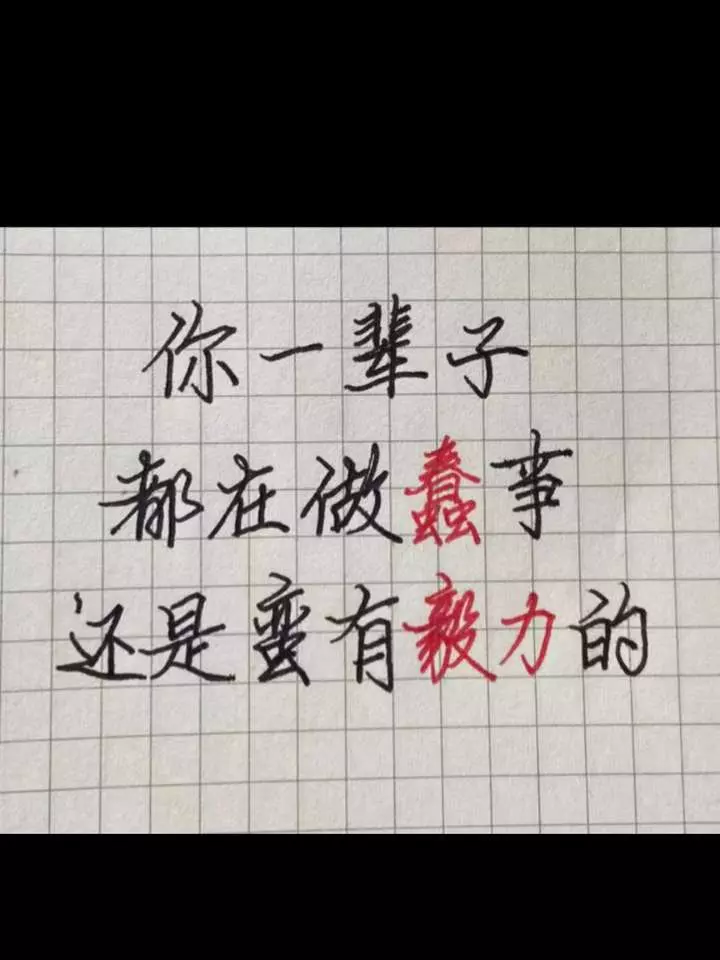 你一辈子
都在做蠢事
还是蛮有毅力的